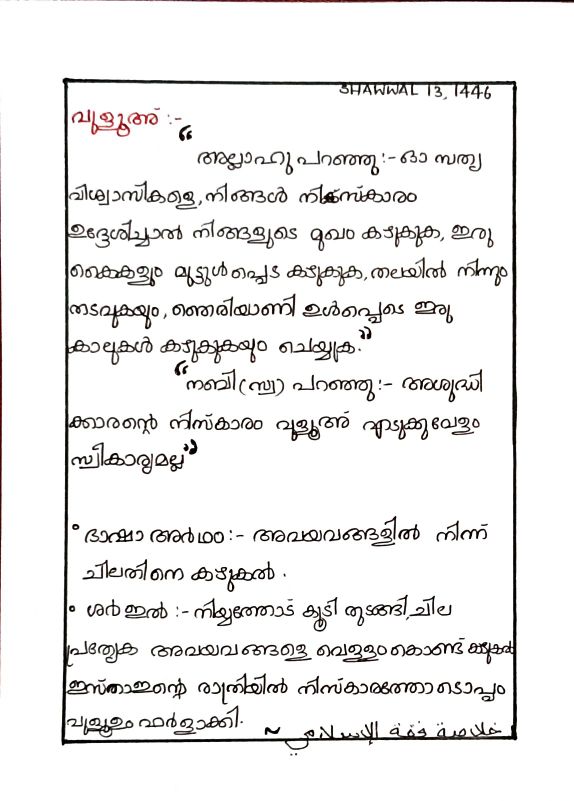 SHAWWAL 13, 1446
വുളൂഅ് :-
“അല്ലാഹു പറഞ്ഞു:- ഓ സത്യ
വിശ്വാസികളെ, നിങ്ങൾ നിസ്കാരം
ഉദ്ദേശിച്ചാൽ നിങ്ങളുടെ മുഖം കഴുകുക, ഇരു
കൈകളും മുട്ടുൾപ്പെടെ കഴുകുക, തലയിൽ നിന്നും
തടവുകയും, ഞെരിയാണി ഉൾപ്പെടെ ഇരു
കാലുകൾ കഴുകുകയും ചെയ്യുക.”
“നബി(സ്വ) പറഞ്ഞു:- അശുദ്ധി
ക്കാരന്റെ നിസ്കാരം വുളൂഅ് എടുക്കുവോളം
സ്വീകാര്യമല്ല”
° ഭാഷാ അർഥം:- അവയവങ്ങളിൽ നിന്ന്
ചിലതിനെ കഴുകൽ.
• ശർഇൽ :- നിയ്യത്തോട് കൂടി തുടങ്ങി, ചില
പ്രത്യേക അവയവങ്ങളെ വെള്ളം കൊണ്ട് കഴുകൽ
ഇസ്റാഇന്റെ രാത്രിയിൽ നിസ്കാരത്തോടൊപ്പം
വുളൂഉം ഫർളാക്കി.
~ خلاصة فقه الإسلامي